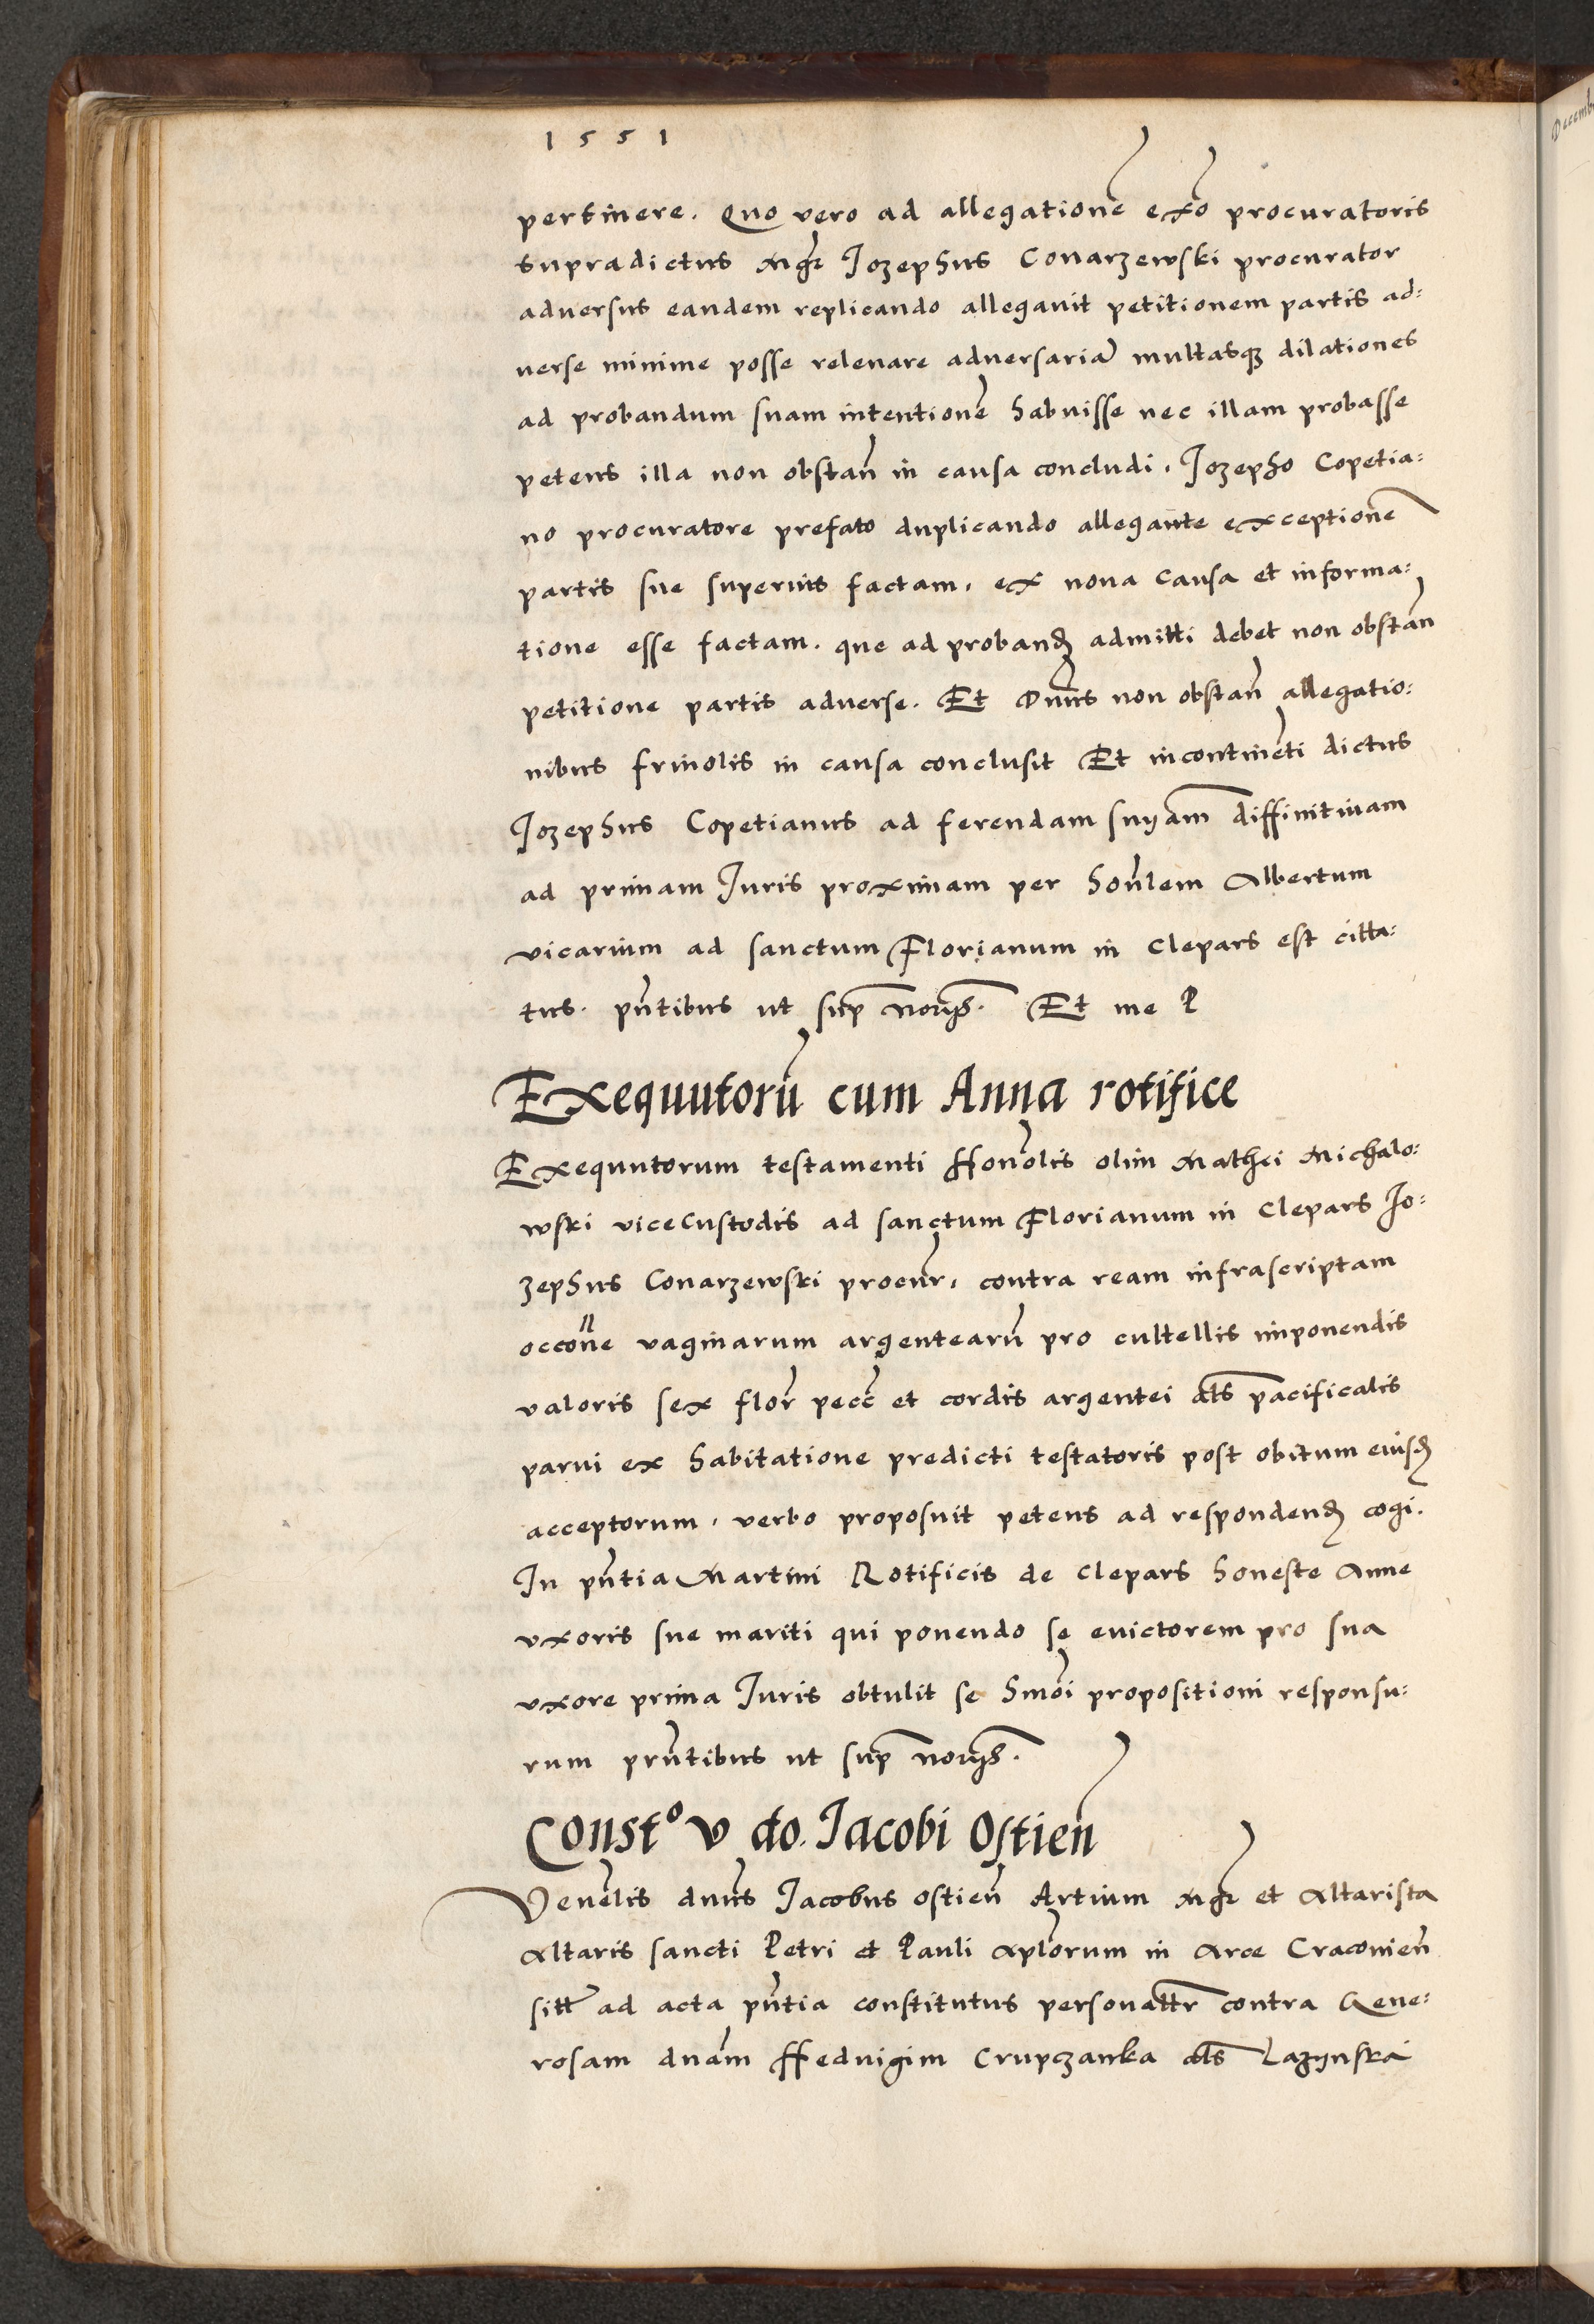 1551
pertinere. Quo vero ad allegationē exō procuratoris
supradictus Mgr̃ Jozephus Conarzewski procurator
adversus eandem replicando allegavit petitionem partis ad:
verse minime posse relevare adversariā multasqꝫ dilationes
ad probandum suam intentionē habuisse nec illam probasse
petens illa non obstan̄ in causa concludi. Jozepho Copetia:
no procuratore prefato duplicando allegante exceptionē
partis sue superius factam, ex nova causa et informa:
tione esse factam. que ad proband̃ admitti debet non obstan̄
petitione partis adverse. Et Dn̄us non obstan̄ allegatio:
nibus frivolis in causa conclusit Et incontinēti dictus
Jozephus Copetianus ad ferendam sn̄yam diffinitivam
ad primam Juris proximam per hon̄lem Albertum
vicarium ad sanctum Florianum in Clepars est citta:
tus. pn̄tibus ut sup̄ no͞r͞y͞s. Et me P
Exequutorū cum Anna rotifice
Exequutorum testamenti Honōlis olim Mathei Michalo:
wski viceCustodis ad sanctum Florianum in Clepars Jo:
zephus Conarzewski procūr, contra ream infrascriptam
occōne vaginarum argentearū pro cultellis imponendis
valoris sex flor̄ pecc̄ et cordis argentei al̄s pacificalis
parvi ex habitatione predicti testatoris post obitum eiusd̃
acceptorum, verbo proposuit petens ad respondend̃ cogi.
In pn̄tia Martini Rotificis de Clepars honeste Anne
uxoris sue mariti qui ponendo se evictorem pro sua
uxore prima Juris obtulit se hmōi propositioni responsu:
rum prn̄tibus ut sup̄ no͞r͞y͞s.
Constº v do. Jacobi Ostien̄
Venēlis dn̄us Jacobus ostien̄ Artium Mgr̃ et Altarista
Altaris sancti Petri et Pauli Aplōrum in Arce Cracovien̄
sitt̄ ad acta pn̄tia constitutus personalt̄r contra Gene:
rosam dnām Hedvigim Crupczanka al̄s Lazynska